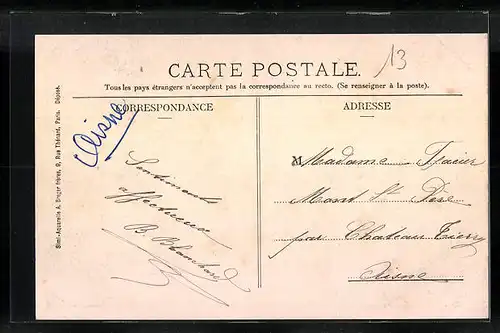 13
CARTE POSTALE.
Tous les pays étrangers n'acceptent pas la correspondance au recto. (Se renseigner à la poste).
CORRESPONDANCE
ADRESSE
Aisne
Sentiments
affectueux
B. Blanchard
Madame
Mont St Père
par Chateau Tierry
Aisne
Simi-Aquarelle A. Breger frères, 9, Rue Thénard, Paris. Déposé.